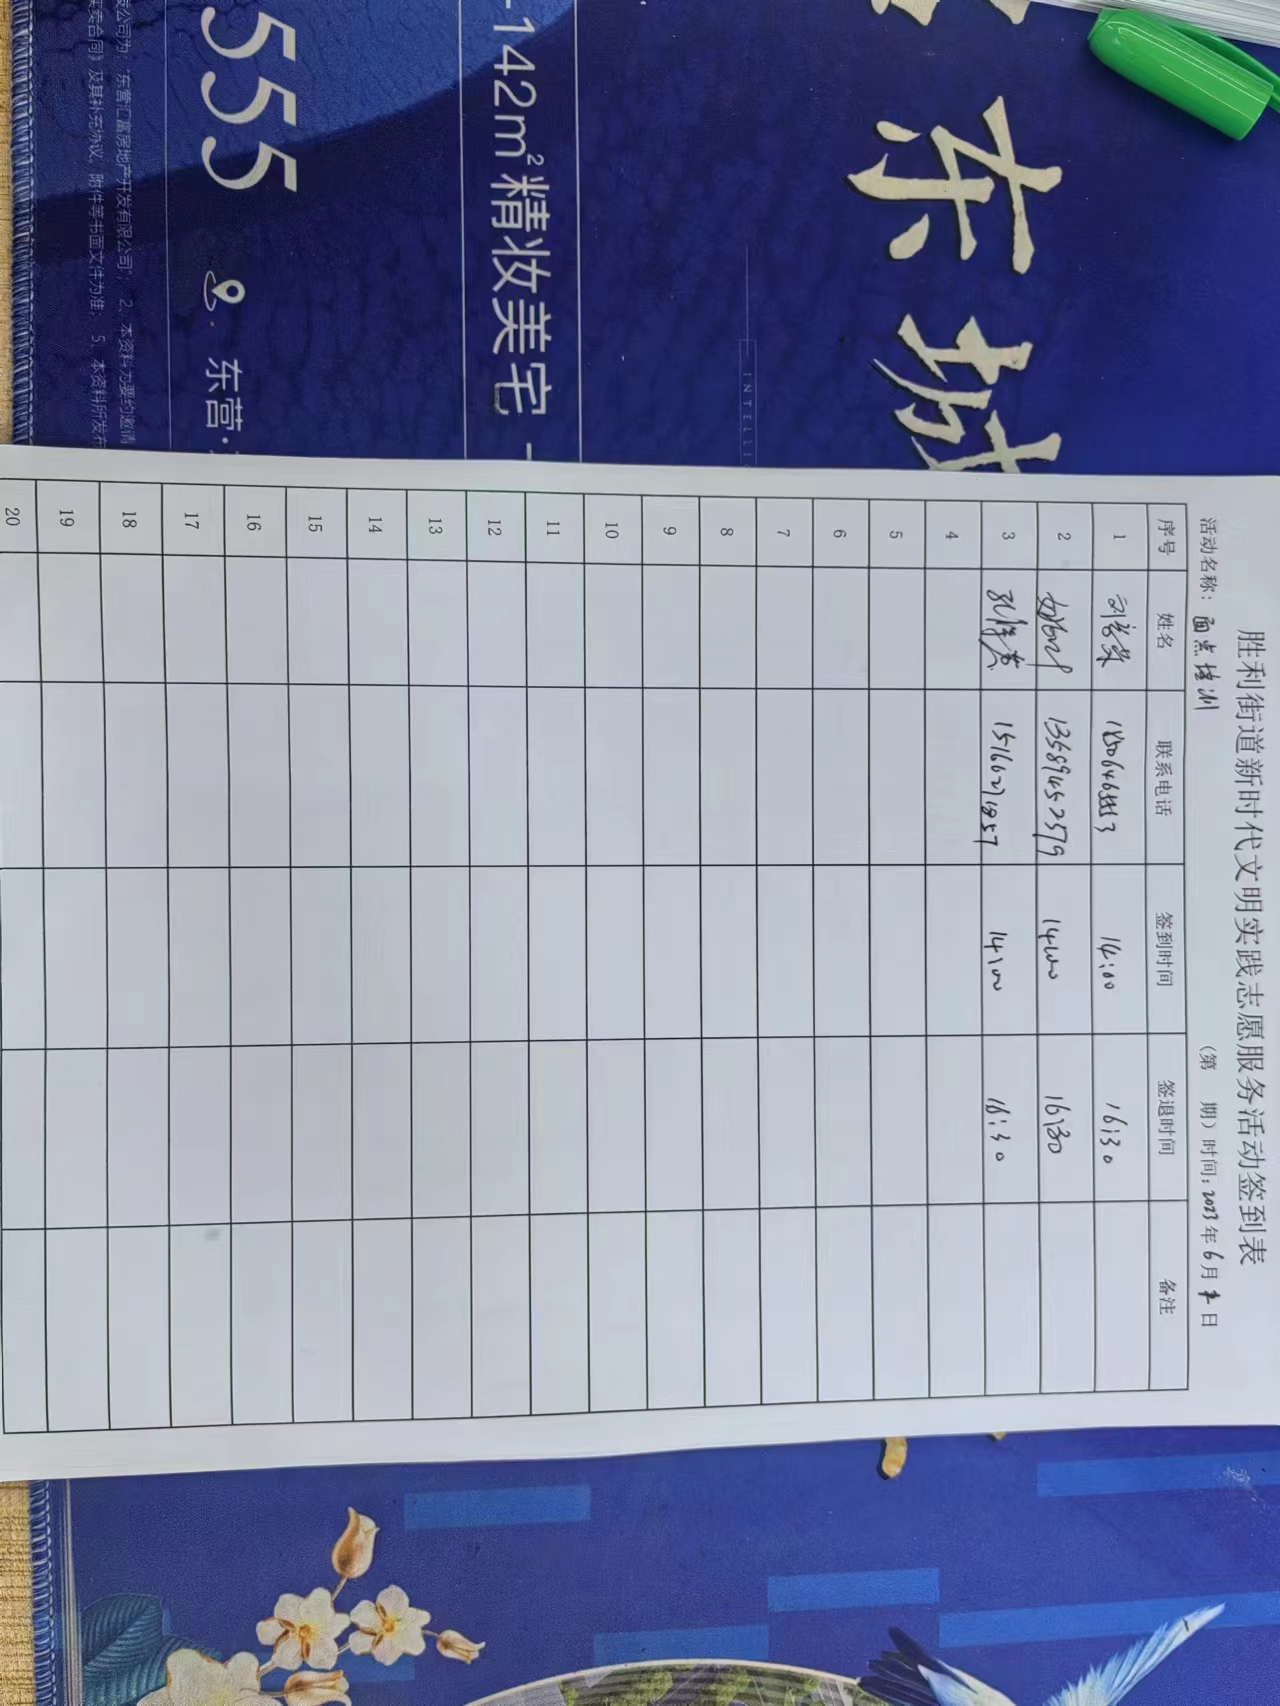 555
东营·
-142m²精妆美宅
INTELLI
东
发公司为：东营汇富房地产开发有限公司； 2、本资料为要约邀请
卖合同》及其补充协议、附件等书面文件为准； 5、本资料所发布
胜利街道新时代文明实践志愿服务活动签到表
活动名称：面点培训 （第 期）时间：2023年6月 日
序号 姓名 联系电话 签到时间 签退时间 备注
1 14:00 16:30
2 13589452579 14:00 16:30
3 15166271857 14:00 16:30
4
5
6
7
8
9
10
11
12
13
14
15
16
17
18
19
20